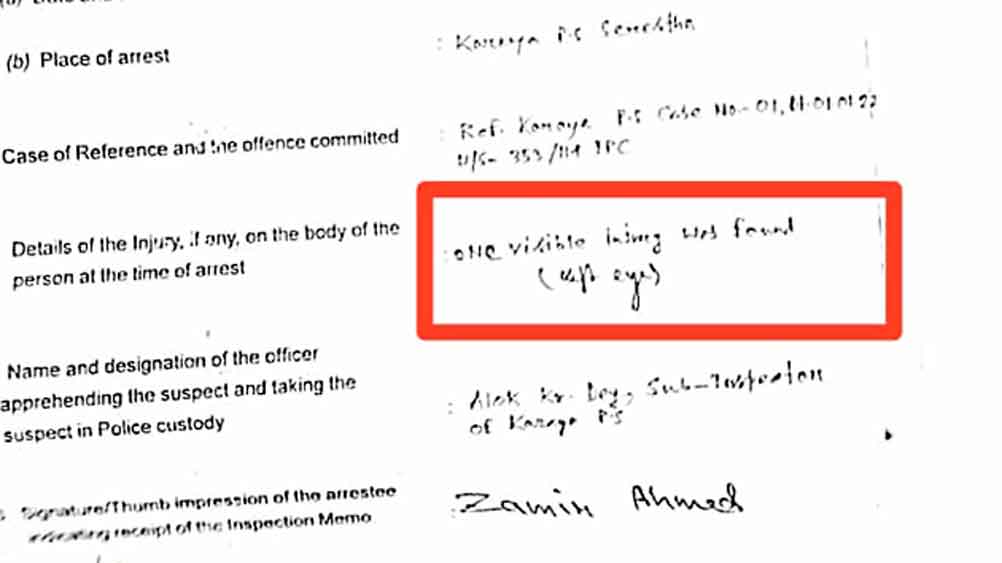 (b) Place of arrest : Karaya P.S
Case of Reference and the offence committed : Ref. Karaya P.S Case No-01,
U/S- 353/114 IPC
Details of the Injury, if any, on the body of the
person at the time of arrest
: one visible injury was found
(left eye)
Name and designation of the officer
apprehending the suspect and taking the
suspect in Police custody
: Alok Kr. Dey, Sub-Inspector
of Karaya P.S
Signature/Thumb impression of the arrestee
receipt of the Inspection Memo
: Zamir Ahmed